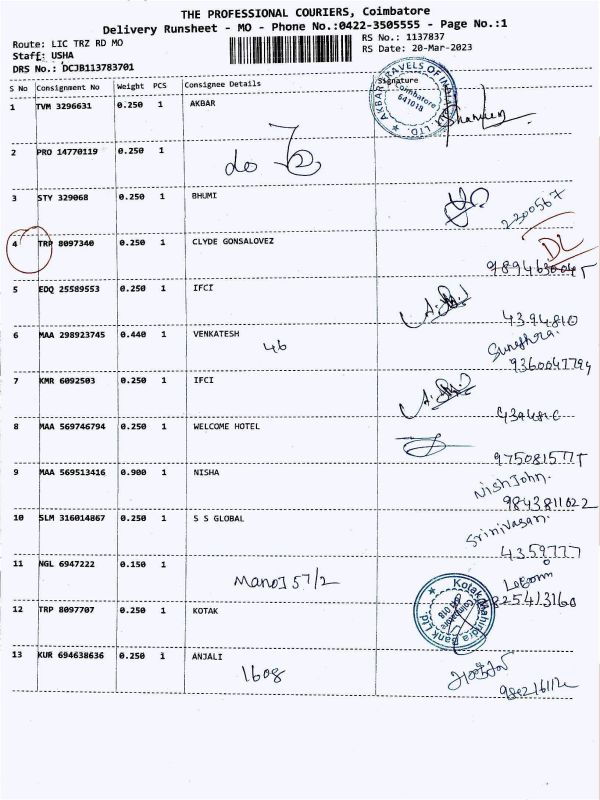 THE PROFESSIONAL COURIERS, Coimbatore
Delivery Runsheet - MO - Phone No.:0422-3505555 - Page No.:1
Route: LIC TRZ RD MO
RS No.: 1137837
Staff: USHA
RS Date: 20-Mar-2023
DRS No.: DCJB113783701
S No Consignment No Weight PCS Consignee Details Signature
1 TVM 3296631 0.250 1 AKBAR
AKBAR TRAVELS OF INDIA LTD.
Coimbatore
641018
2 PRO 14770119 0.250 1
do
3 STY 329068 0.250 1 BHUMI
2300567
4 TRP 8097340 0.250 1 CLYDE GONSALOVEZ
DL
5 EDQ 25589553 0.250 1 IFCI
4394810
6 MAA 298923745 0.440 1 VENKATESH
46
9360047794
7 KMR 6092503 0.250 1 IFCI
8 MAA 569746794 0.250 1 WELCOME HOTEL
9 MAA 569513416 0.900 1 NISHA
Nish John.
9843811022
10 SLM 316014867 0.250 1 S S GLOBAL
Srinivasan.
4359777
11 NGL 6947222 0.150 1
Manoj 57/2
12 TRP 8097707 0.250 1 KOTAK
Kotak Mahindra Bank Ltd.
Coimbatore
13 KUR 694638636 0.250 1 ANJALI
1608